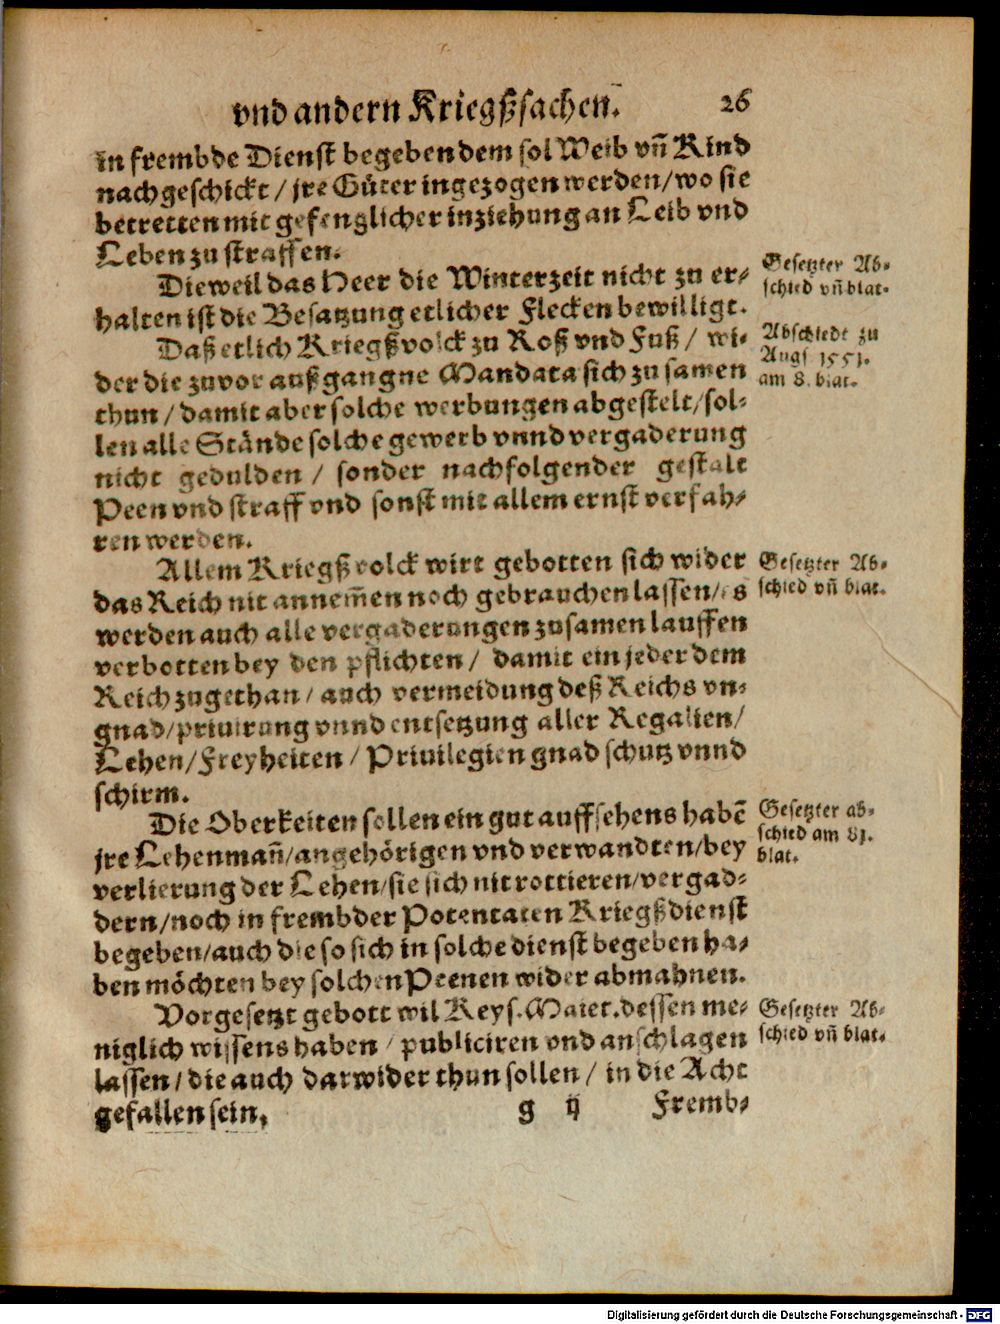 vnd andern Kriegßsachen. 26
in frembde Dienst begeben dem sol Weib vñ Kind
nachgeschickt / jre Güter ingezogen werden / wo sie
betretten mit gefenglicher inziehung an Leib vnd
Leben zu straffen.
Dieweil das Heer die Winterzeit nicht zu er-
halten ist die Besatzung etlicher Flecken bewilligt.
Gesetzter Ab-
schied vñ blat.
Daß etlich Kriegßvolck zu Roß vnd Fuß / wi-
der die zuvor außgangne Mandata sich zu samen
thun / damit aber solche werbungen abgestelt / sol-
len alle Stände solche gewerb vnnd vergaderung
nicht gedulden / sonder nachfolgender gestalt
Peen vnd straff vnd sonst mit allem ernst verfah-
ren werden.
Abschiedt zu
Augs 1551.
am 8. blat.
Allem Kriegßvolck wirt gebotten sich wider
das Reich nit annem̃en noch gebrauchen lassen / es
werden auch alle vergaderungen zusamen lauffen
verbotten bey den pflichten / damit ein jeder dem
Reich zugethan / auch vermeidung deß Reichs vn-
gnad / priuirung vnnd entsetzung aller Regalien /
Lehen / Freyheiten / Priuilegien gnad schutz vnnd
schirm.
Gesetzter Ab-
schied vñ blat.
Die Oberkeiten sollen ein gut auffsehens habẽ
jre Lehenmañ / angehörigen vnd verwandten / bey
verlierung der Lehen / sie sich nit rottieren / vergad-
dern / noch in frembder Potentaten Kriegßdienst
begeben / auch die so sich in solche dienst begeben ha-
ben möchten bey solchen Peenen wider abmahnen.
Gesetzter ab-
schied am 81.
blat.
Vorgesetzt gebott wil Keys. Maiet. dessen me-
niglich wissens haben / publiciren vnd anschlagen
lassen / die auch darwider thun sollen / in die Acht
gefallen sein.
Gesetzter Ab-
schied vñ blat.
g ij Fremb-
Digitalisierung gefördert durch die Deutsche Forschungsgemeinschaft - DFG